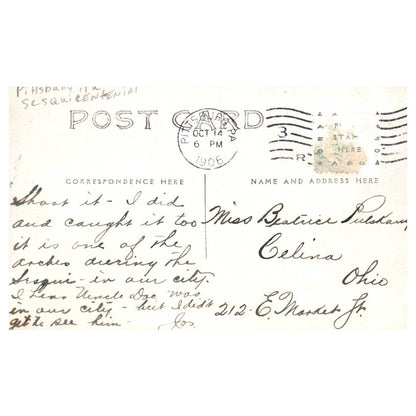 Pittsburg Pa
Sesquicentenial
POST CARD
PITTSBURG, PA
OCT 14
6 PM
1908
3
R
STAMP
HERE
CORRESPONDENCE HERE
NAME AND ADDRESS HERE
Shoot it - I did
and caught it too
it is one of the
arches during the
Sesqui - in our city.
I hear Uncle Doc was
in our city - but I didn't
get to see him -
Jos.
Miss Beatrice
Celina
Ohio
212 - E. Market St.